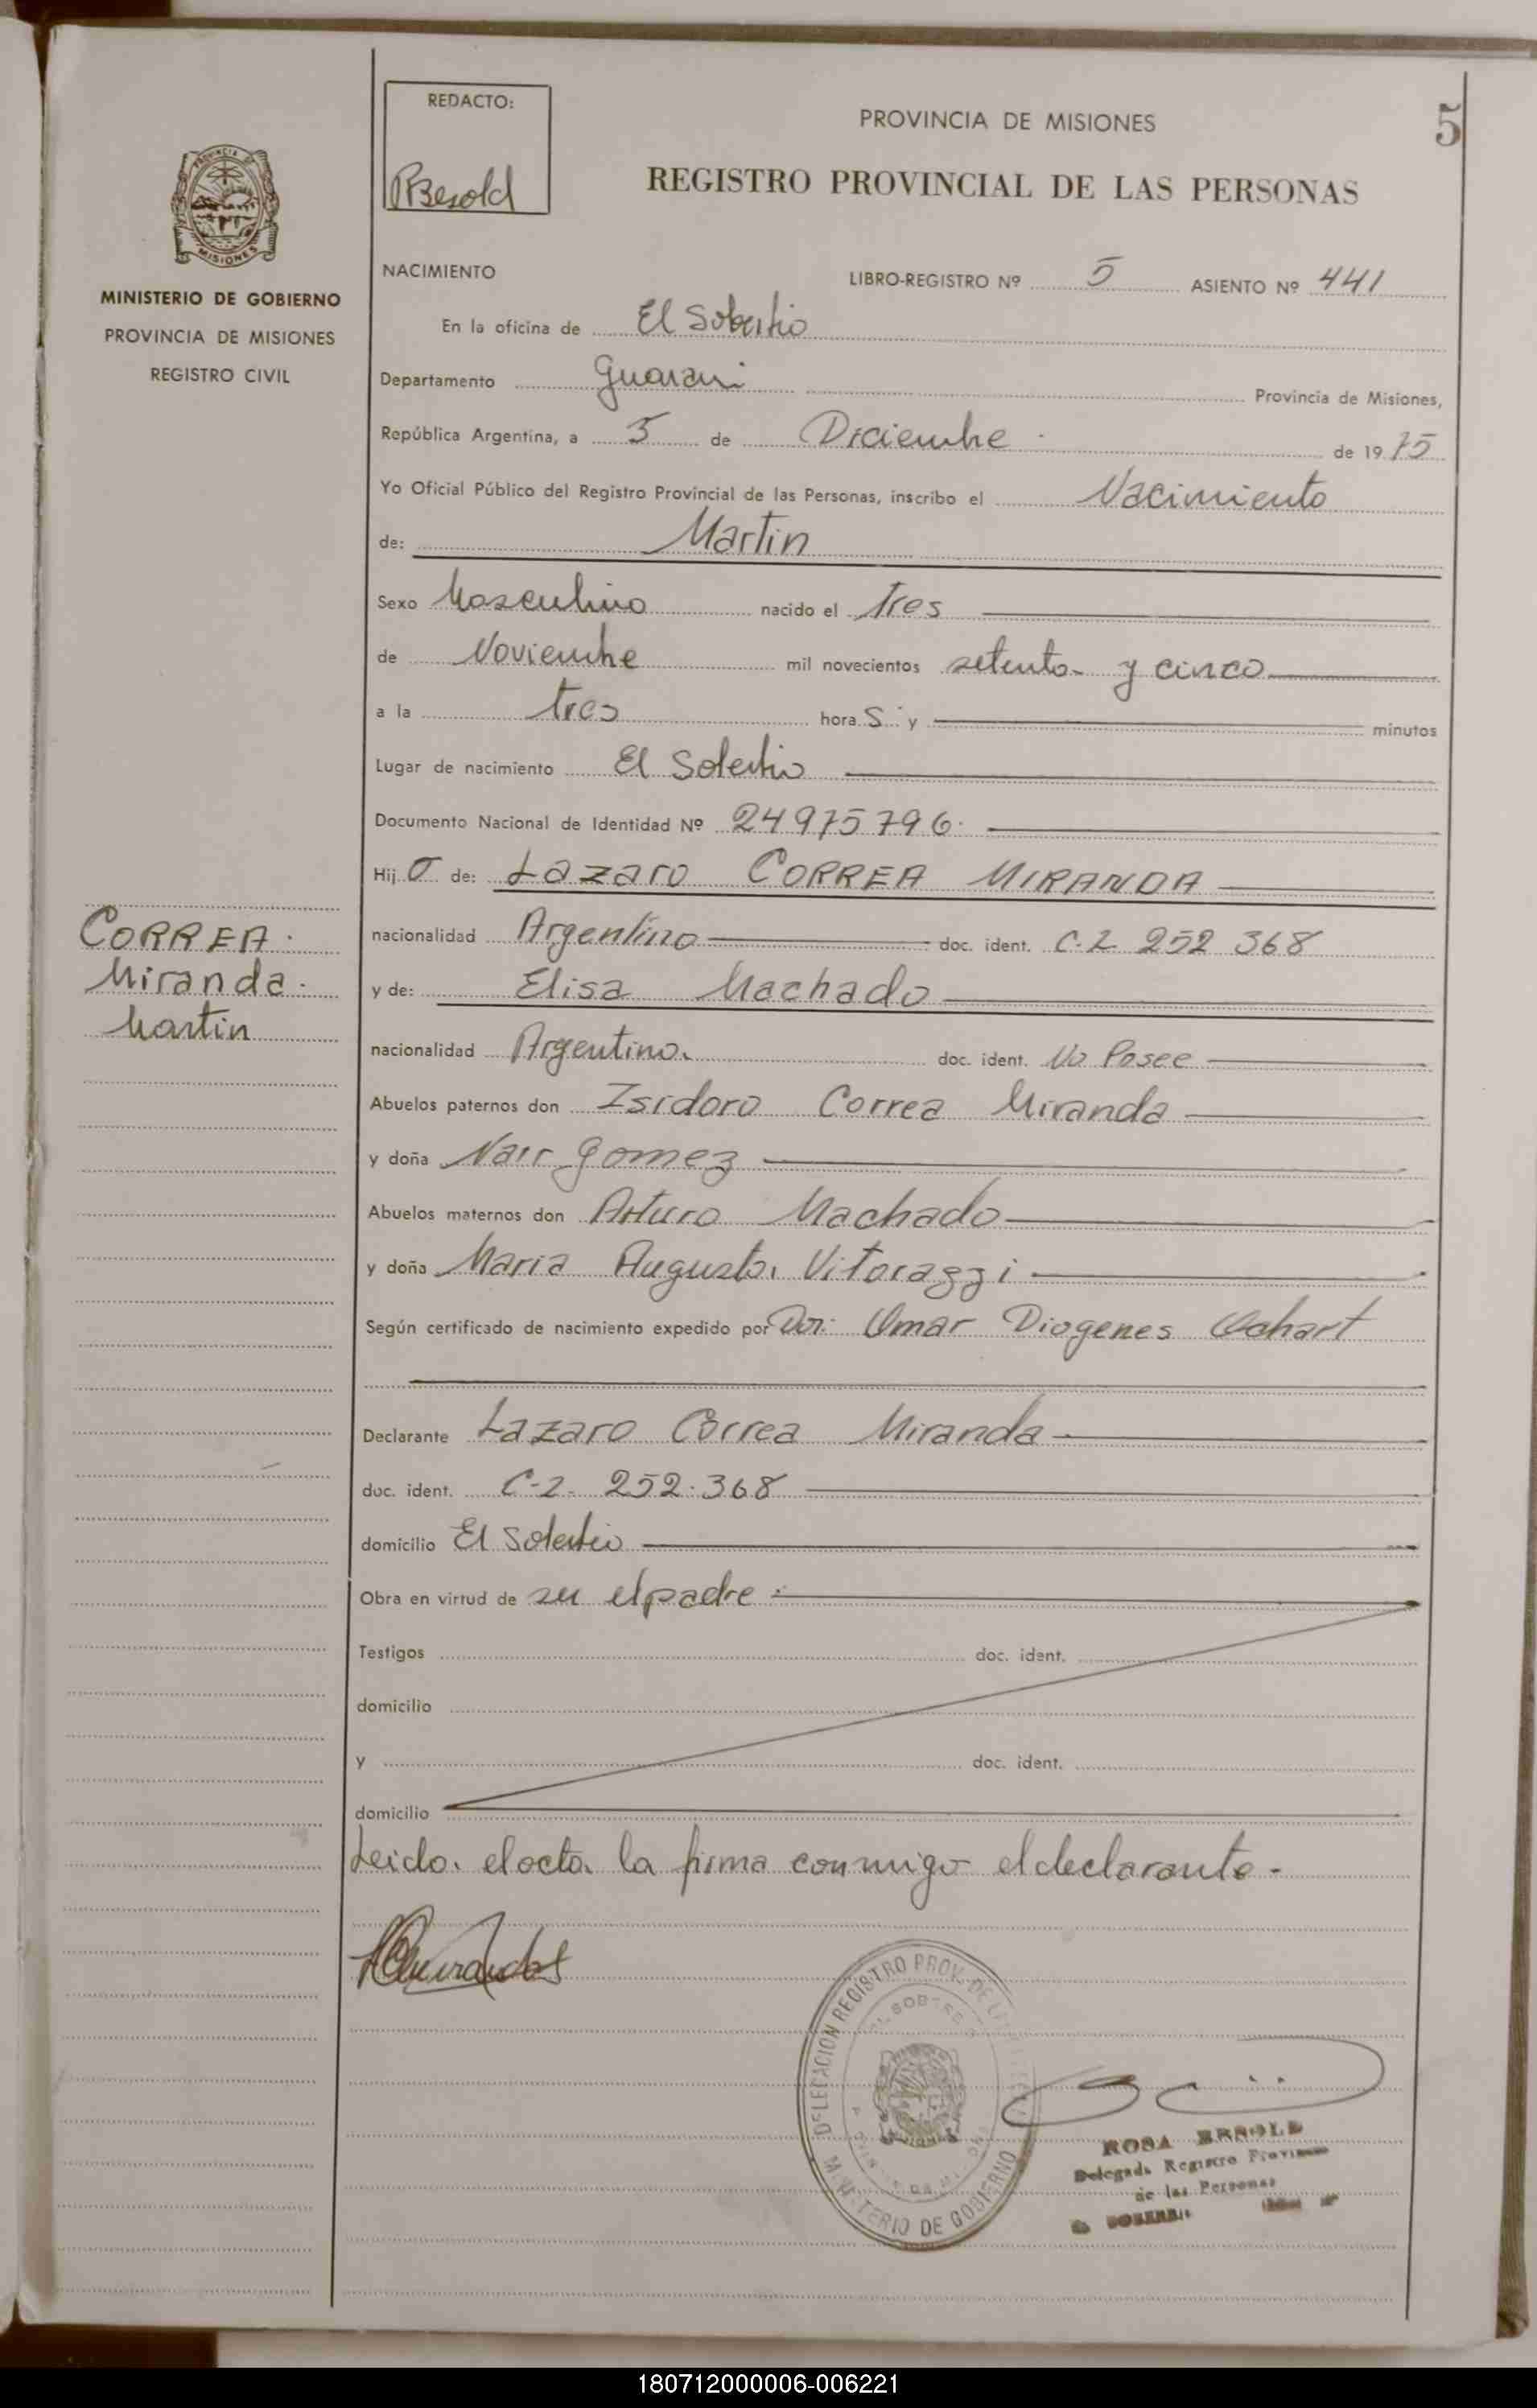 5
REDACTO:
PBesold
PROVINCIA DE MISIONES
REGISTRO PROVINCIAL DE LAS PERSONAS
MISIONES
MINISTERIO DE GOBIERNO
PROVINCIA DE MISIONES
REGISTRO CIVIL
NACIMIENTO LIBRO-REGISTRO Nº 5 ASIENTO Nº 441
En la oficina de El Soberbio
Departamento Guarani Provincia de Misiones,
República Argentina, a 5 de Diciembre de 1975
Yo Oficial Público del Registro Provincial de las Personas, inscribo el Nacimiento
de: Martin
Sexo Masculino nacido el tres
de Noviembre mil novecientos setenta y cinco
a la tres hora s y minutos
Lugar de nacimiento El Soberbio
Documento Nacional de Identidad Nº 24975796
Hij o de: Lazaro CORREA MIRANDA
CORREA
Miranda
Martin
nacionalidad Argentino doc. ident. C.I. 252 368
y de: Elisa Machado
nacionalidad Argentina doc. ident. No Posee
Abuelos paternos don Isidoro Correa Miranda
y doña Nair Gomez
Abuelos maternos don Arturo Machado
y doña Maria Augusta Vitorazzi
Según certificado de nacimiento expedido por Dor: Omar Diogenes
Declarante Lazaro Correa Miranda
doc. ident. C-I- 252.368
domicilio El Soberbio
Obra en virtud de su el padre
Testigos doc. ident.
domicilio
y doc. ident.
domicilio
Leida el acta la firma conmigo el declarante.-
DELEGACION REGISTRO PROV. DE
MINISTERIO DE GOBIERNO
ROSA BESOLD
Delegada Registro Provincial
de las Personas
EL SOBERBIO
180712000006-006221